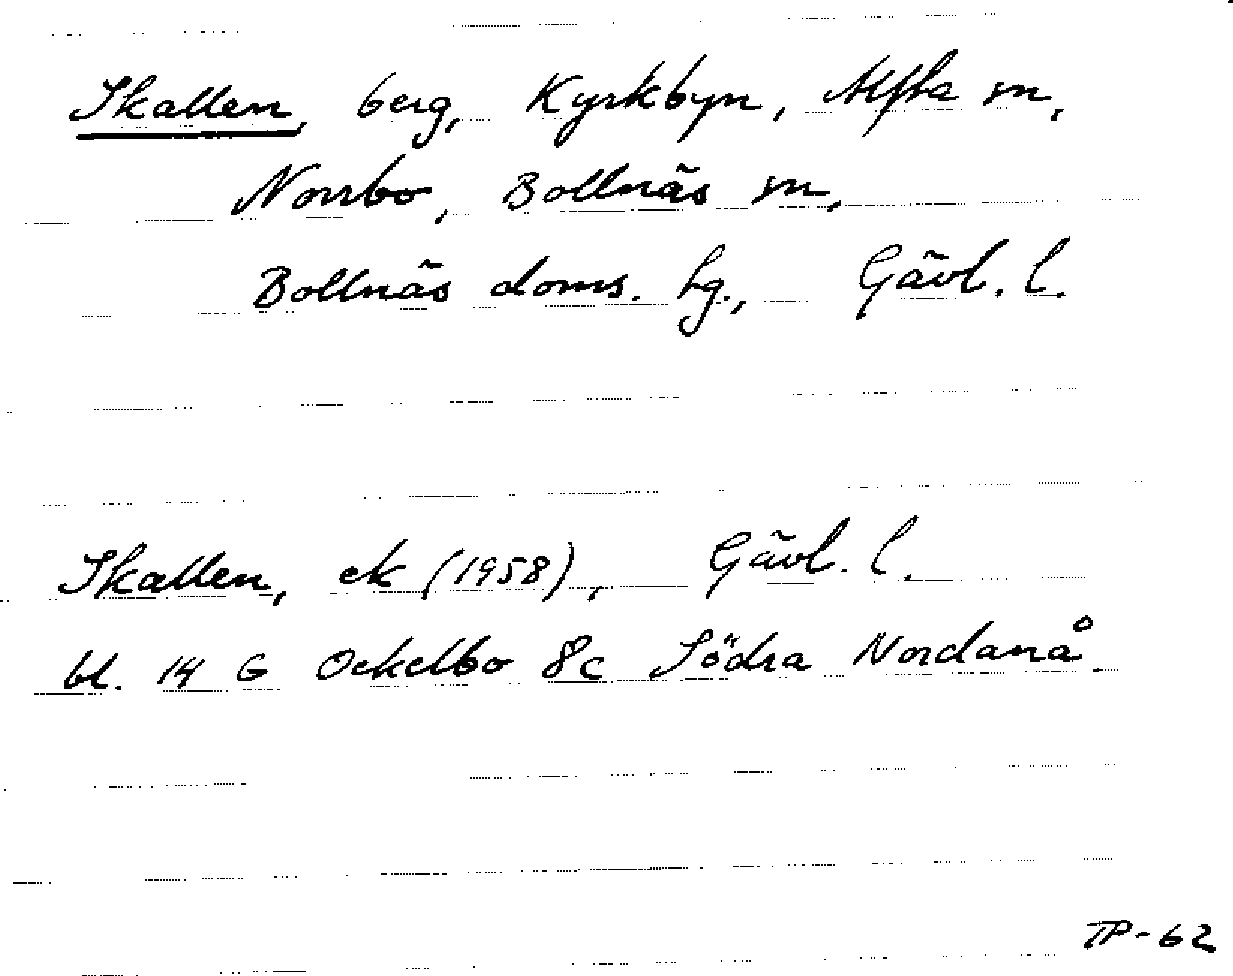 Skallen, berg, Kyrkbyn, Alfta sn,
Norrbo, Bollnäs sn,
Bollnäs doms. hg., Gävl. l.
Skallen, ek (1958), Gävl. l.
bl. 14 G Ockelbo 8c Södra Nordanå.
TP-62